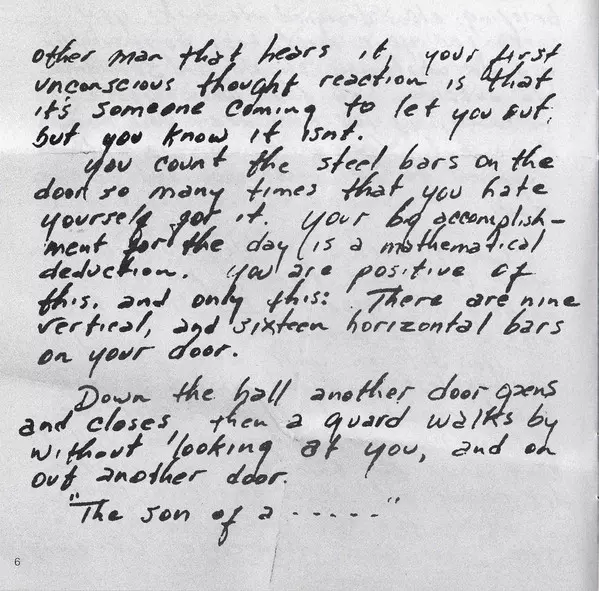 other man that hears it, your first
unconscious thought reaction is that
it's someone coming to let you out,
but you know it isnt.
You count the steel bars on the
door so many times that you hate
yourself for it. Your big accomplish-
ment for the day is a mathematical
deduction. You are positive of
this, and only this: There are nine
vertical, and sixteen horizontal bars
on your door.
Down the hall another door opens
and closes, then a guard walks by
without looking at you, and on
out another door.
"The son of a ....."
6